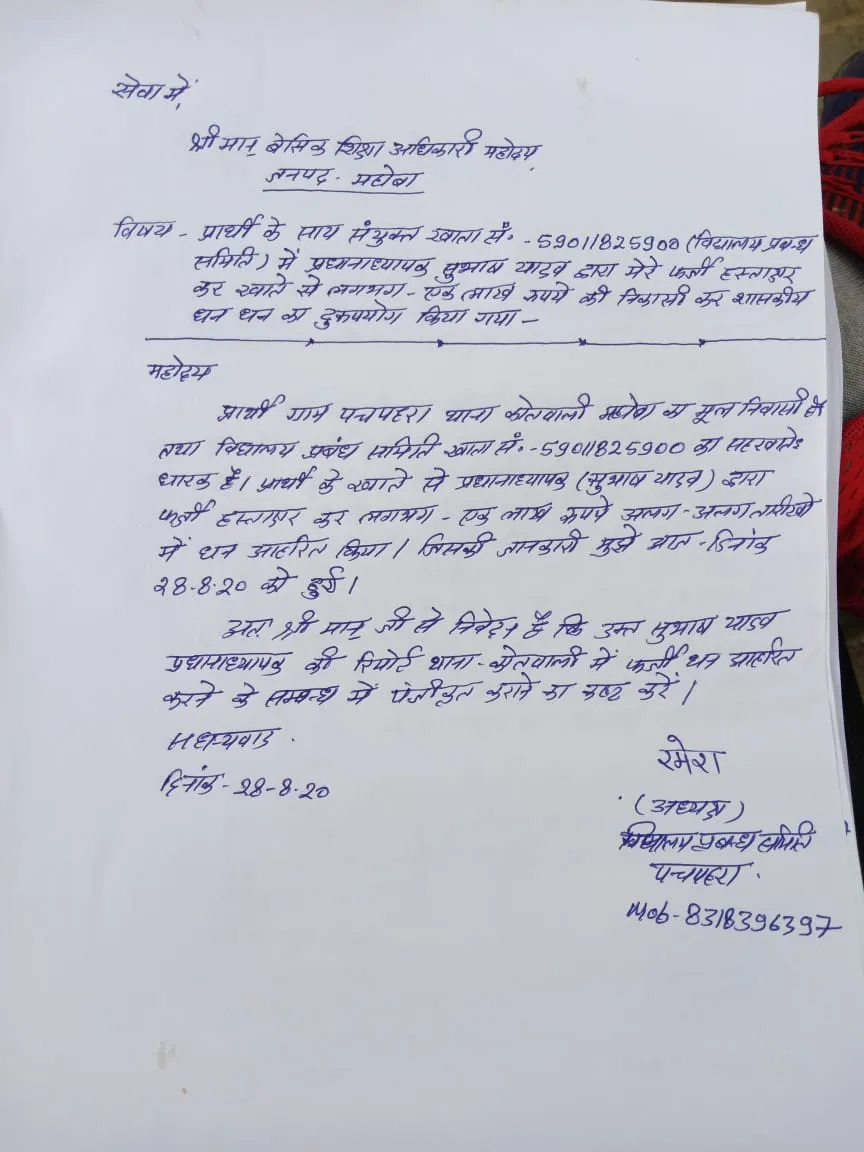 सेवा में,
श्री मान् बेसिक शिक्षा अधिकारी महोदय,
जनपद - महोबा
विषय - प्रार्थी के साथ संयुक्त खाता सं. - 59011825900 (विद्यालय प्रबन्ध
समिति) में प्रधानाध्यापक सुभाष यादव द्वारा मेरे फर्जी हस्ताक्षर
कर खाते से लगभग - एक लाख रुपये की निकासी कर शासकीय
धन धन का दुरूपयोग किया गया -
महोदय
प्रार्थी ग्राम पचपहरा थाना कोतवाली महोबा का मूल निवासी है
तथा विद्यालय प्रबंध समिति खाता सं. - 59011825900 का सहखाते
धारक है। प्रार्थी के खाते से प्रधानाध्यापक (सुभाष यादव) द्वारा
फर्जी हस्ताक्षर कर लगभग - एक लाख रुपये अलग-अलग तारीखो
में धन आहरित किया। जिसकी जानकारी मुझे आज - दिनांक
28-8-20 को हुई।
अतः श्री मान् जी से निवेदन है कि उक्त सुभाष यादव
प्रधानाध्यापक की रिपोर्ट थाना - कोतवाली में फर्जी धन आहरित
करने के सम्बन्ध में पंजीकृत कराने का कष्ट करें।
सधन्यवाद.
दिनांक - 28-8-20
रमेश
(अध्यक्ष)
विद्यालय प्रबन्ध समिति
पचपहरा.
Mob - 8318396397